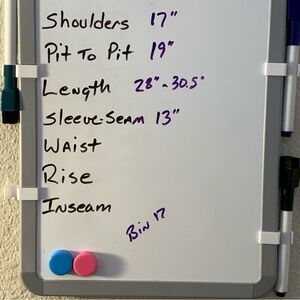 Shoulders 17"
Pit To Pit 19"
Length 28" - 30.5"
Sleeve-Seam 13"
Waist
Rise
Inseam
Bin 17